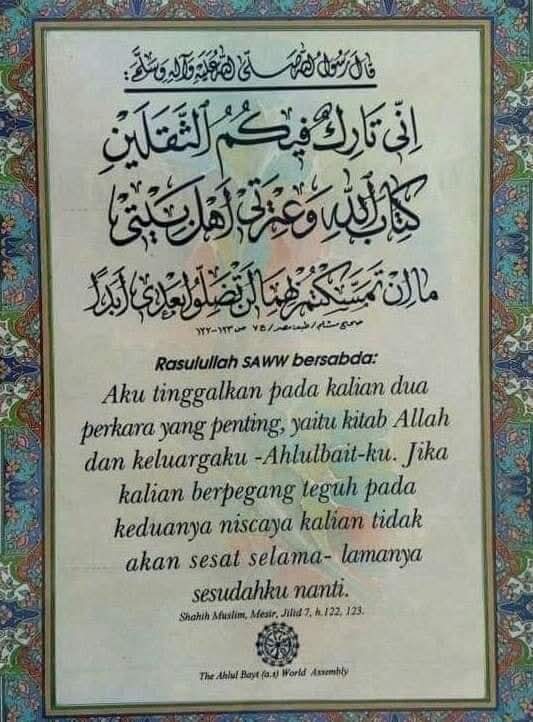 قال رسول الله صلى الله عليه وآله وسلم:
إنّي تارك فيكم الثقلين
كتاب الله وعترتي أهل بيتي
ما إن تمسكتم بهما لن تضلوا بعدي أبدا
صحيح مسلم / طبعة مصر / ج٧ ص ١٢٢-١٢٣
Rasulullah SAWW bersabda:
Aku tinggalkan pada kalian dua
perkara yang penting, yaitu kitab Allah
dan keluargaku -Ahlulbait-ku. Jika
kalian berpegang teguh pada
keduanya niscaya kalian tidak
akan sesat selama- lamanya
sesudahku nanti.
Shahih Muslim, Mesir, Jilid 7, h.122, 123.
The Ahlul Bayt (a.s) World Assembly